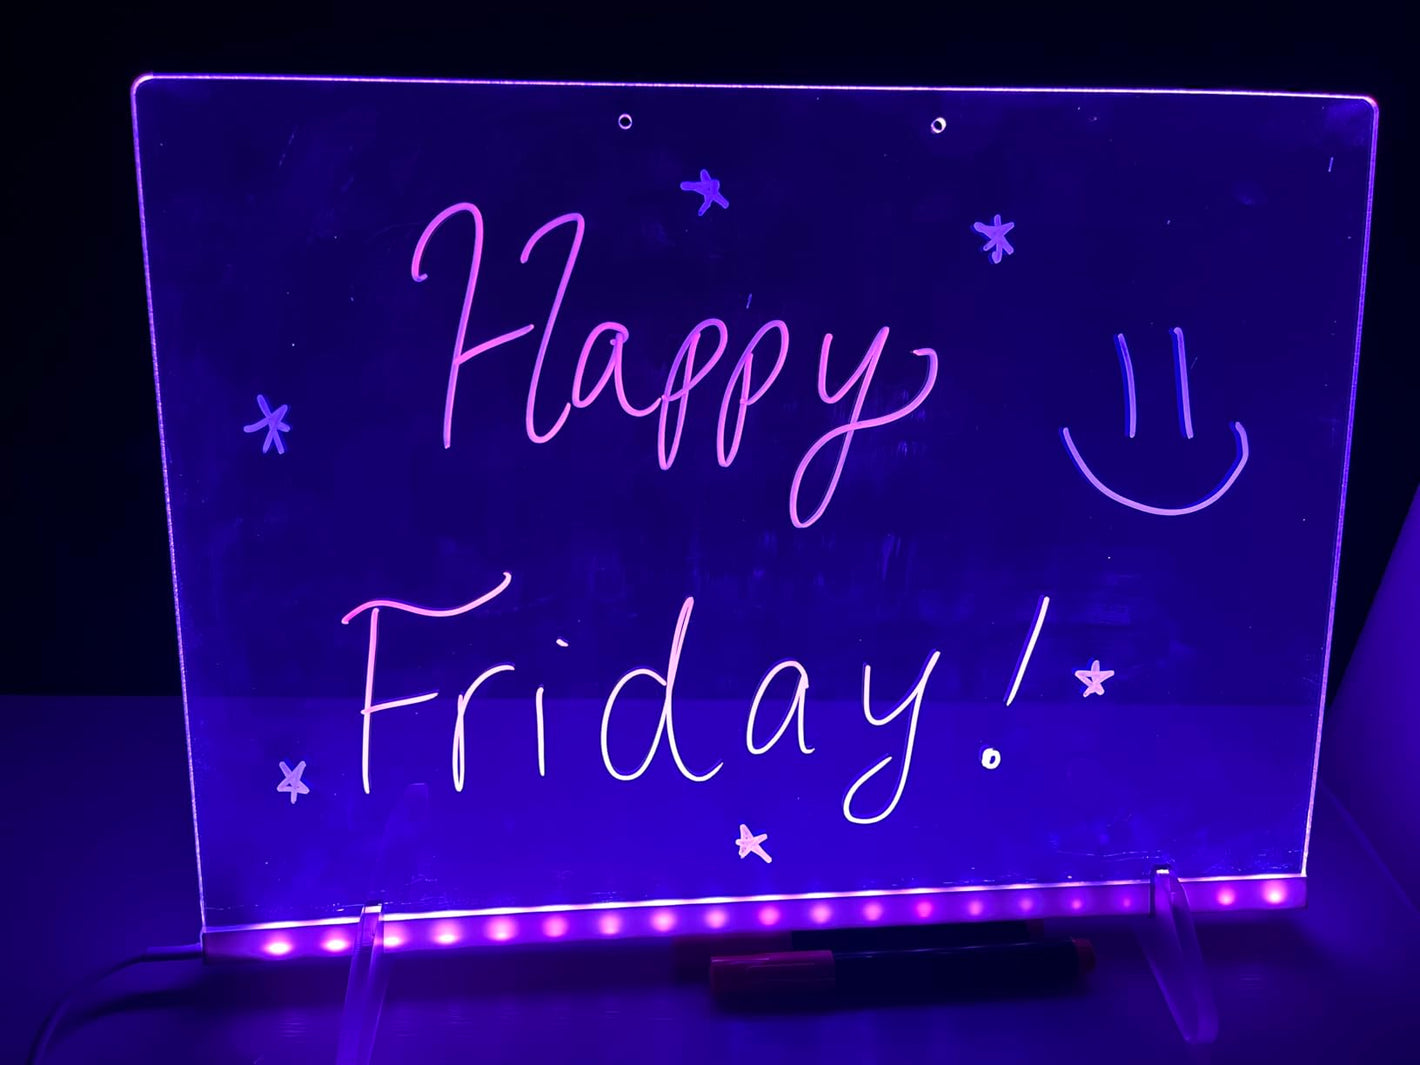 Happy
Friday!